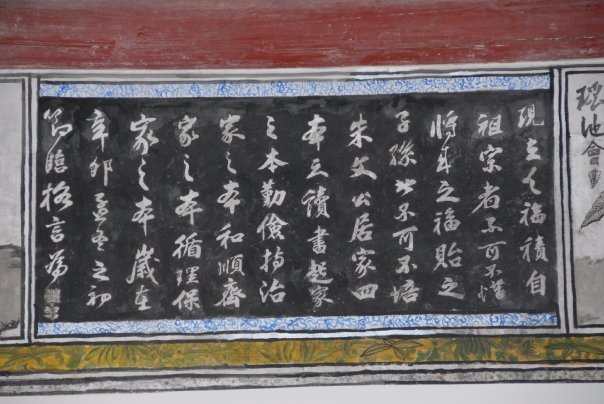 瑶池會
現在之福積自
祖宗者不可不惜
將來之福貽之
子孫者不可不培
朱文公居家四
本云讀書起家
之本勤儉持治
家之本和順齊
家之本循理保
家之本歲在
辛卯孟冬之初
節臨格言為